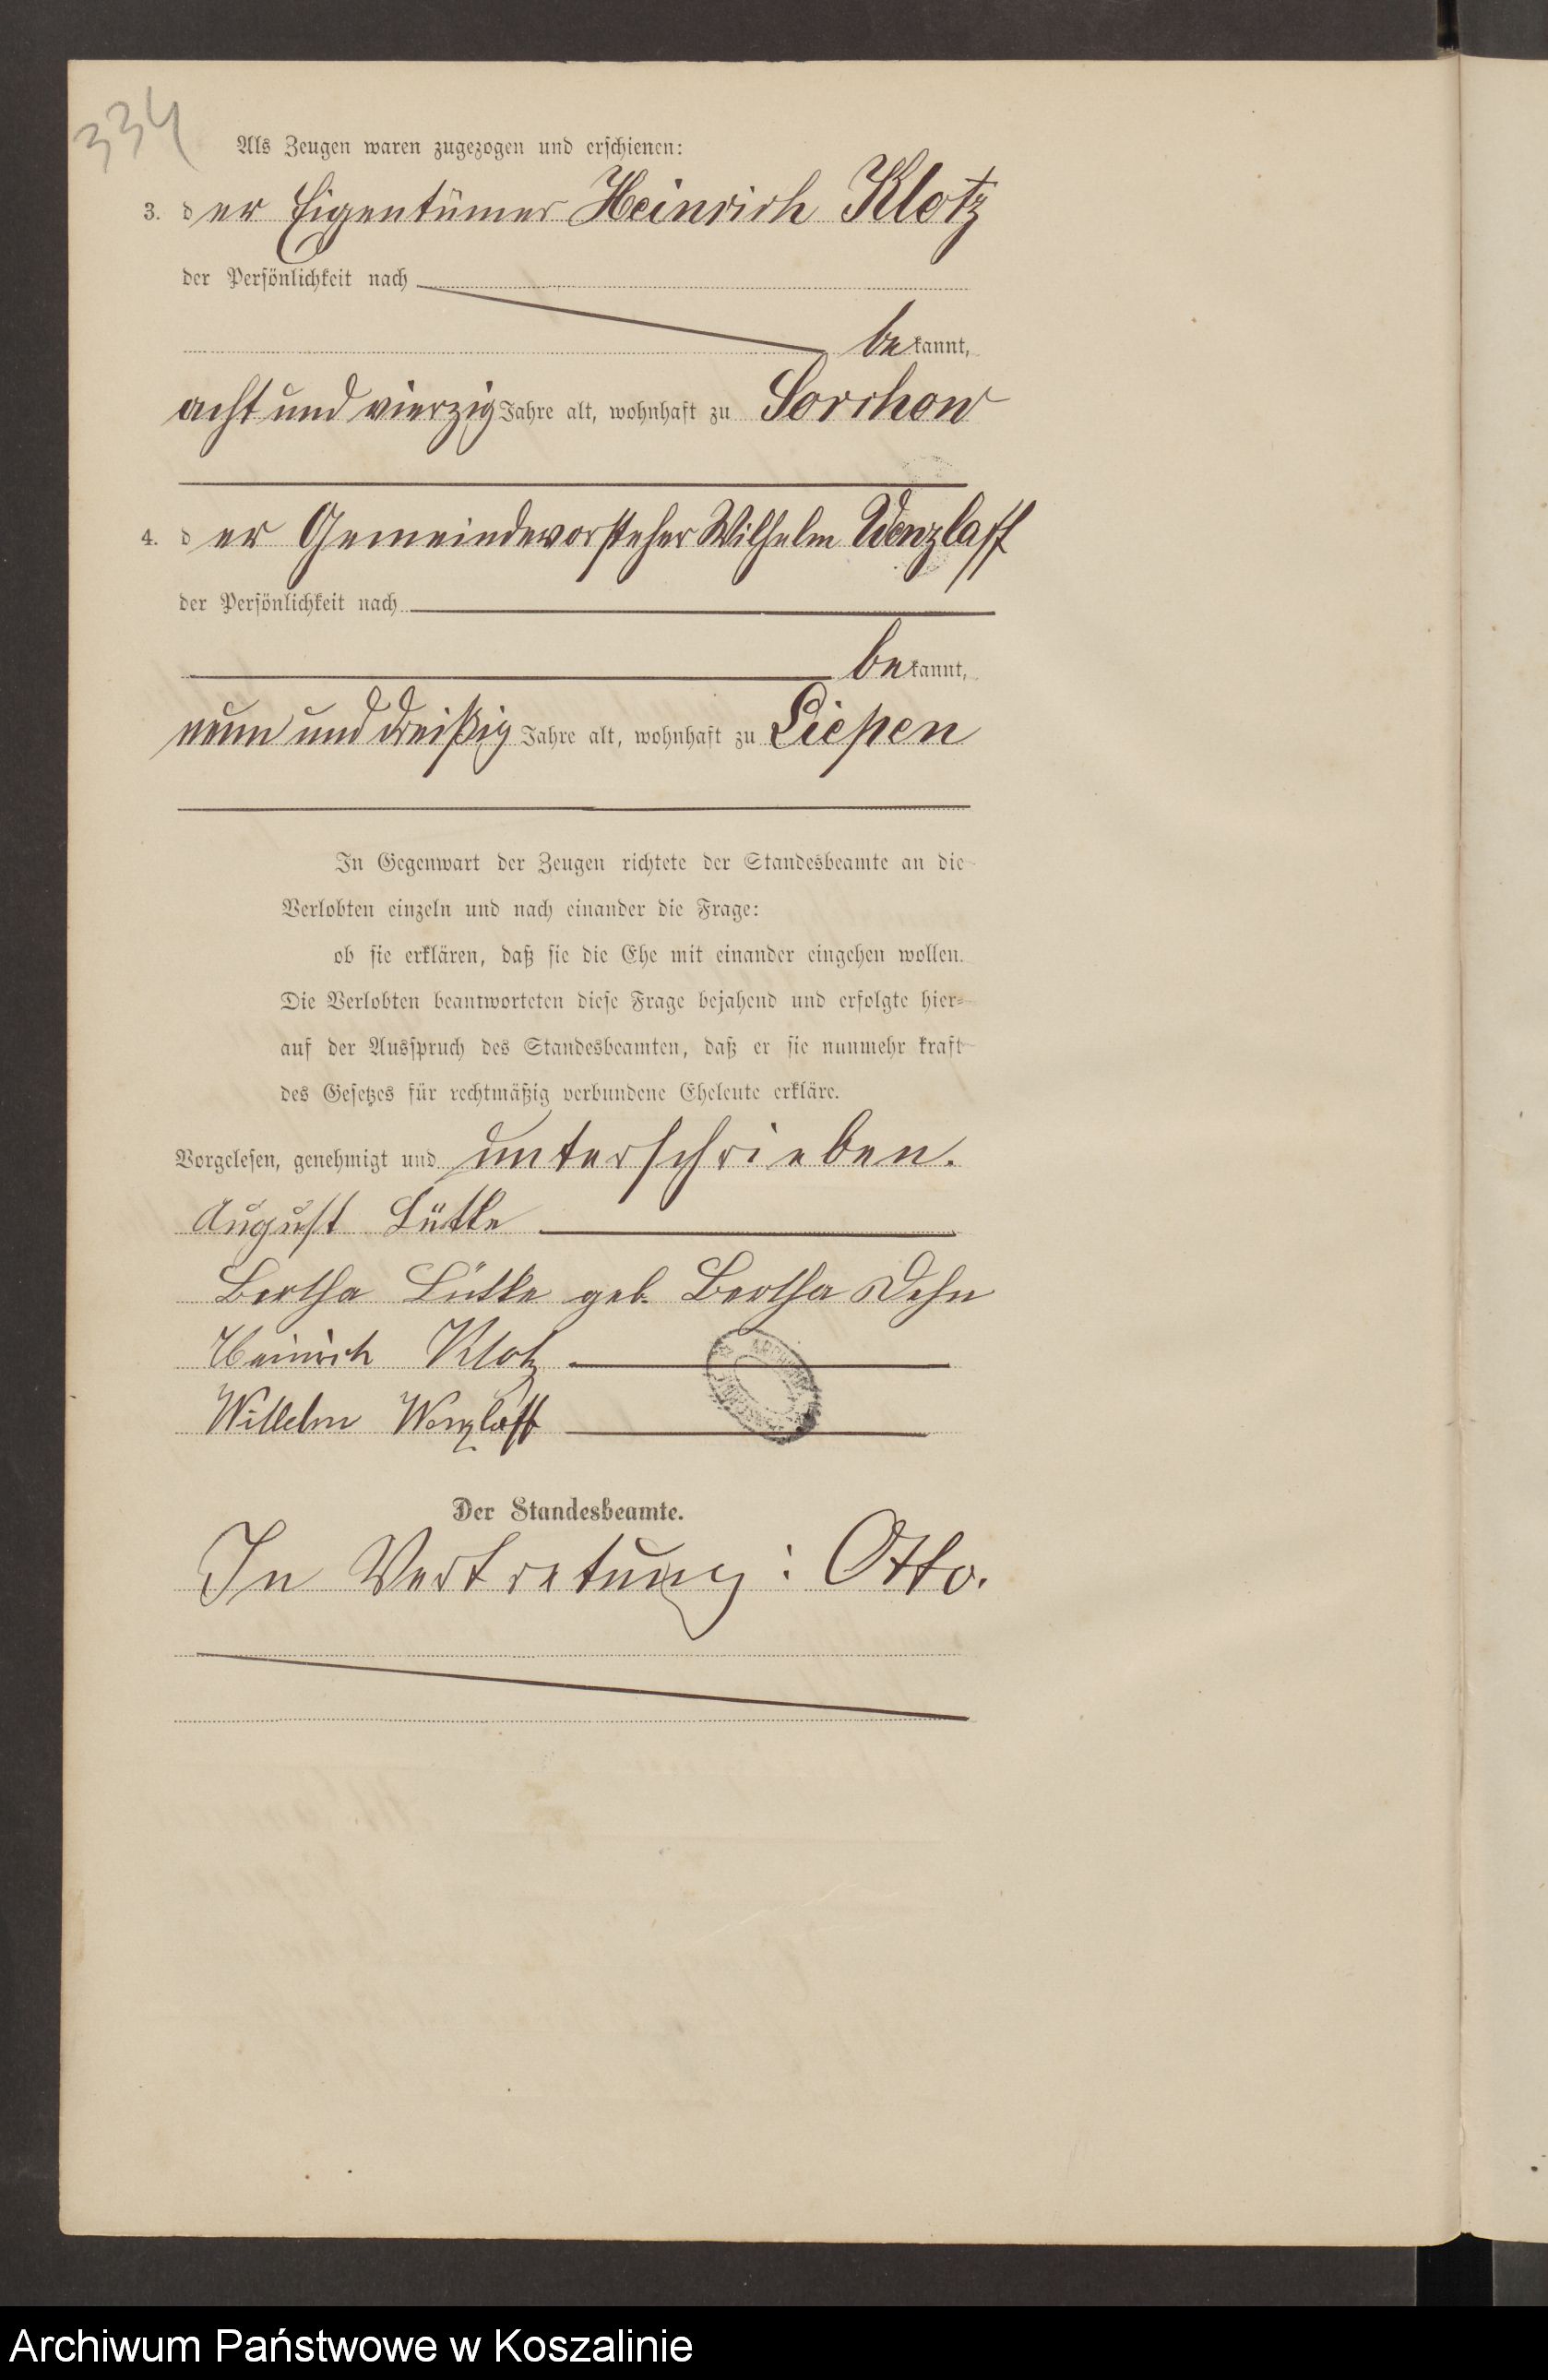 334
Als Zeugen waren zugezogen und erschienen:
3. der Eigentümer Heinrich Klotz
der Persönlichkeit nach
bekannt,
acht und vierzig Jahre alt, wohnhaft zu Sorchow
4. der Gemeindevorsteher Wilhelm Wenzlaff
der Persönlichkeit nach
bekannt,
neun und dreißig Jahre alt, wohnhaft zu Liepen
In Gegenwart der Zeugen richtete der Standesbeamte an die
Verlobten einzeln und nach einander die Frage:
ob sie erklären, daß sie die Ehe mit einander eingehen wollen.
Die Verlobten beantworteten diese Frage bejahend und erfolgte hier-
auf der Ausspruch des Standesbeamten, daß er sie nunmehr kraft
des Gesetzes für rechtmäßig verbundene Eheleute erkläre.
Vorgelesen, genehmigt und unterschrieben.
August Lütke
Bertha Lütke geb. Bertha Dehn
Heinrich Klotz
Wilhelm Wenzlaff
Der Standesbeamte.
In Vertretung: Otto.
Archiwum Państwowe w Koszalinie